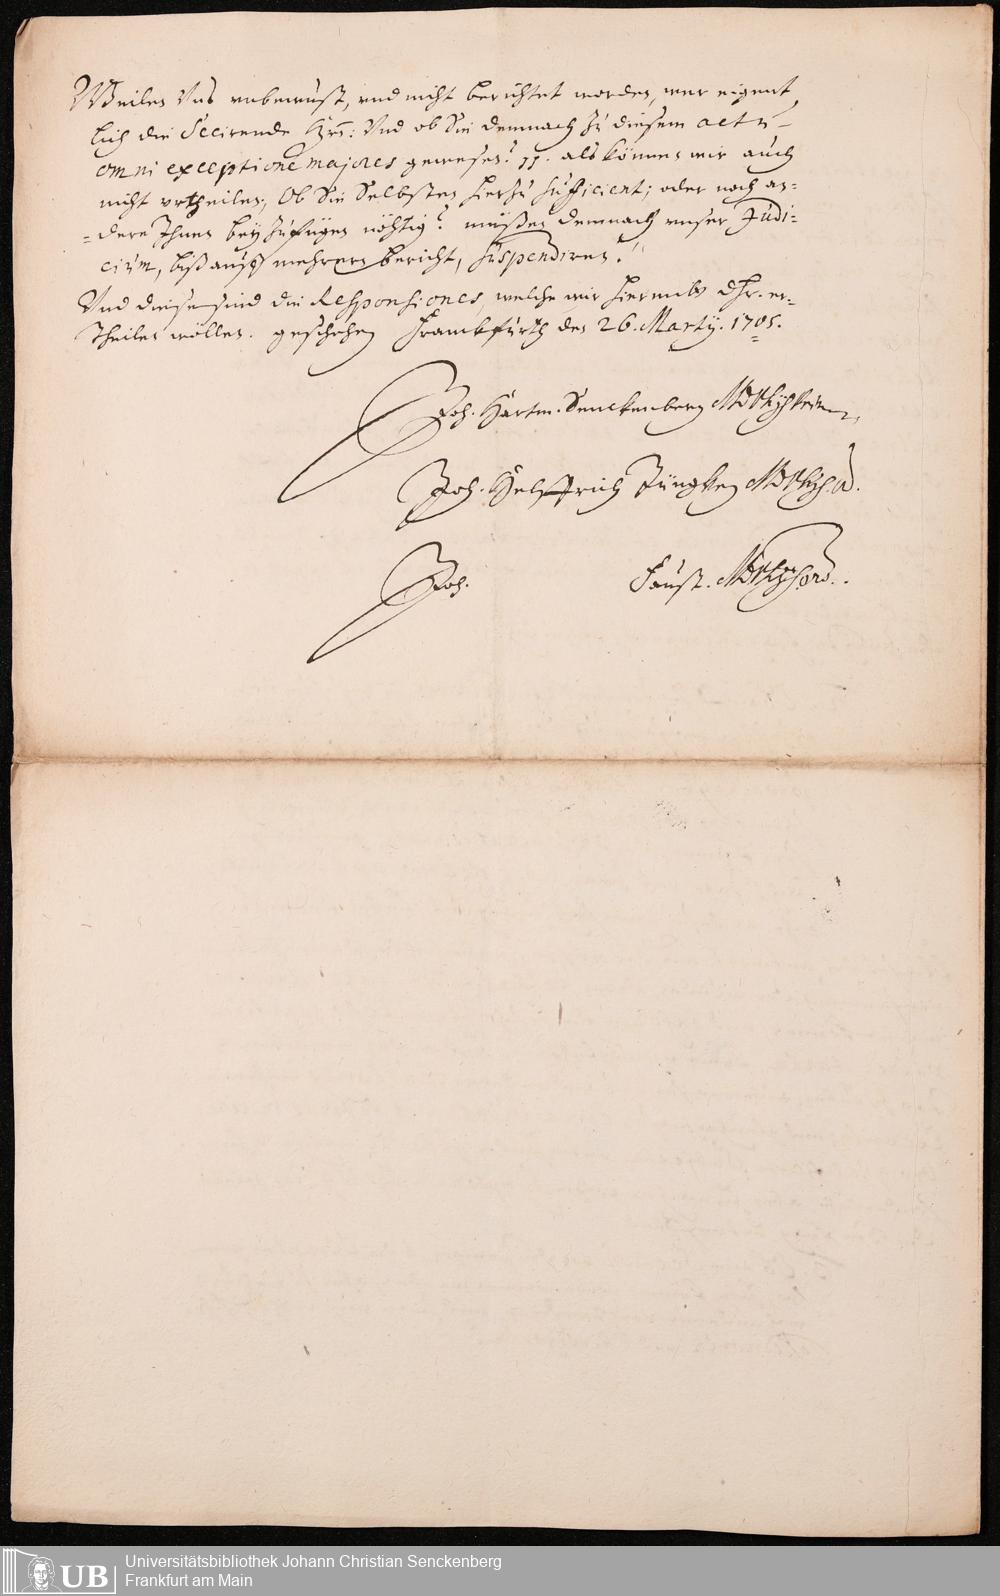 Weilen Uns unbewust, und nicht berichtet worden, wer eigent
lich die Secirende Hrn: Und ob Sie demnach zu diesem actu
omni exceptione majores gewesen? pp. als können wir auch
nicht urtheilen, Ob Sie Selbsten hierzu sufficient; oder noch an=
=dere Ihnen beyzufügen nöhtig? müßen demnach unser Judi=
cium, biß auff mehrern bericht, suspendiren.
Und diese sind die Responsiones, welche wir hiermit er=
Theilen wöllen. geschehen Franckfurth den 26. Martÿ. 1705.
Joh. Hartm. Senckenberg MD
Joh. Helffrich Jüngken MD
Joh. Faust. MD
UB
Universitätsbibliothek Johann Christian Senckenberg
Frankfurt am Main